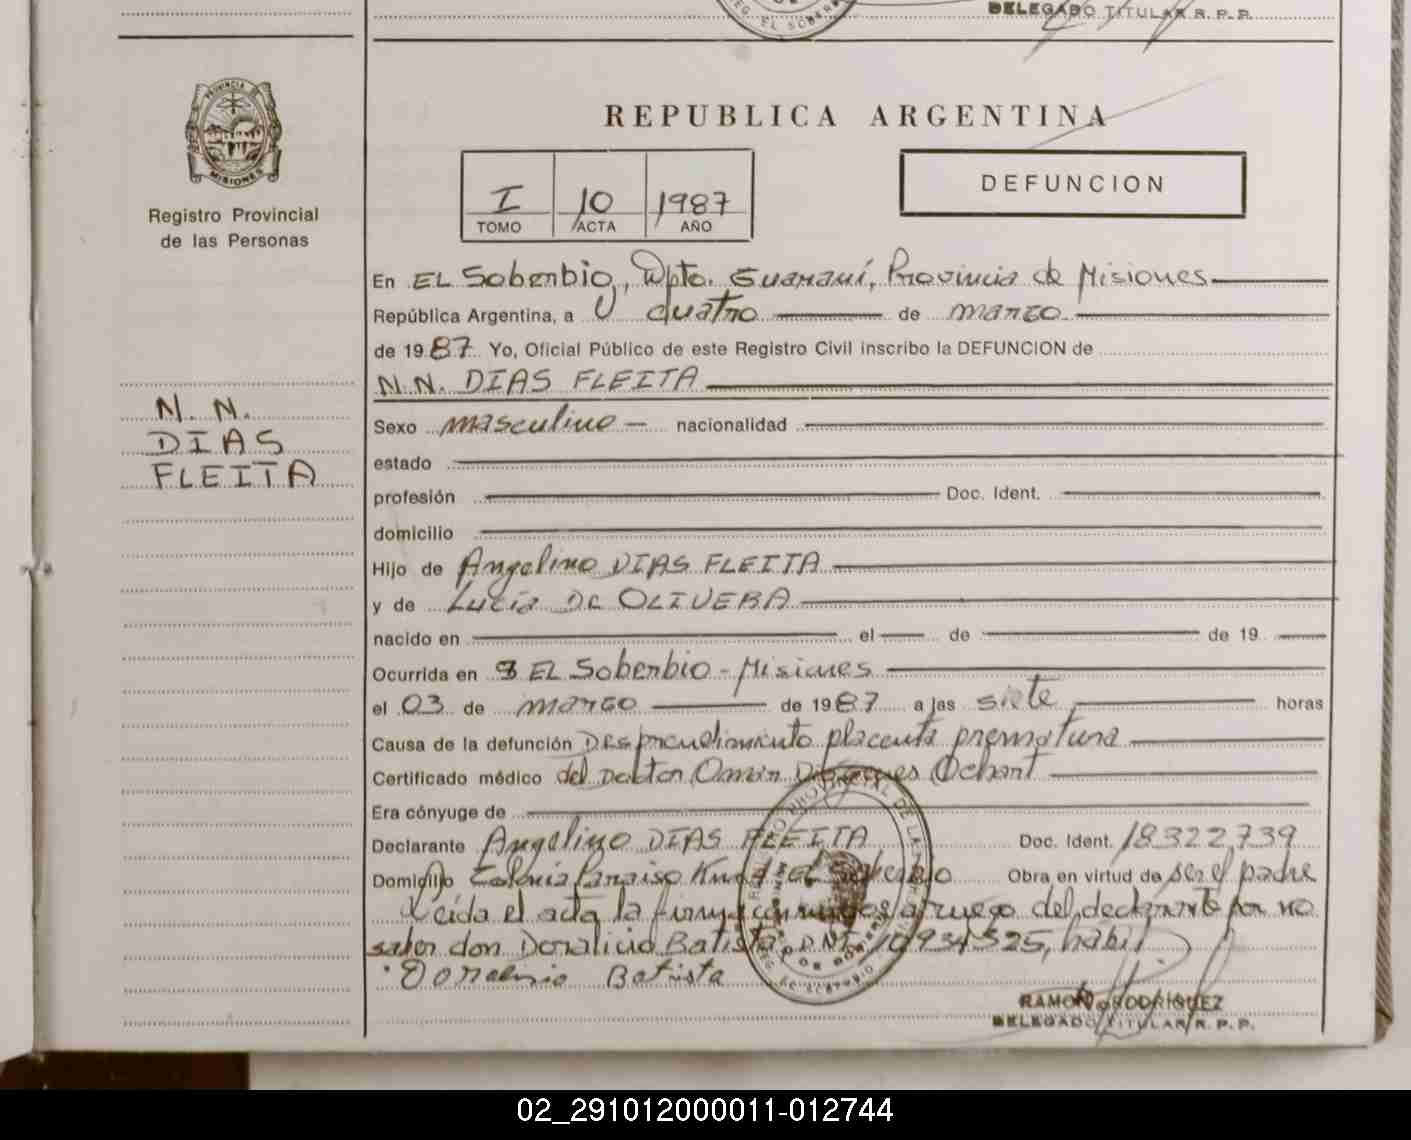 DELEGADO TITULAR R. P. P.
PROVINCIA
MISIONES
Registro Provincial
de las Personas
REPUBLICA ARGENTINA
I 10 1987
TOMO ACTA AÑO
DEFUNCION
En EL Soberbio, Dpto. Guaraní, Provincia de Misiones
República Argentina, a cuatro de marzo
de 1987 Yo, Oficial Público de este Registro Civil inscribo la DEFUNCION de
N.N. DIAS FLEITA
N. N.
DIAS
FLEITA
Sexo masculino nacionalidad
estado
profesión Doc. Ident.
domicilio
Hijo de Angelino DIAS FLEITA
y de Lucía De OLIVERA
nacido en el de de 19
Ocurrida en EL Soberbio - Misiones
el 03 de marzo de 1987 a las siete horas
Causa de la defunción Desprendimiento placenta prematura
Certificado médico del Doctor Omar
Era cónyuge de
Declarante Angelino DIAS FLEITA Doc. Ident. 18322739
Domicilio Colonia Paraiso El Soberbio Obra en virtud de ser el padre
Leída el acta la firma a ruego del declarante por no
saber don Doralicio Batista, D.N.I. habil
Doralisio Batista
RAMON RODRIGUEZ
DELEGADO TITULAR R. P. P.
02_291012000011-012744